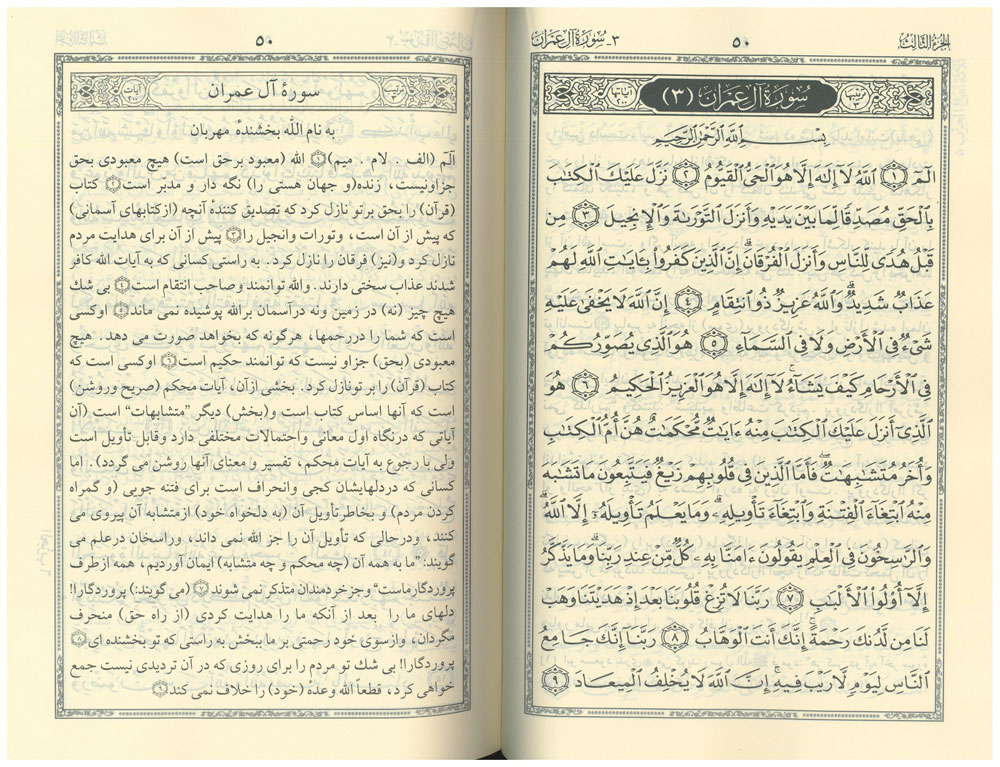 الجزء الثالث ٥٠ ٣ـ سورة آل عمران
ترتيبها ٣ سُورَةُ آلِ عِمْرَانَ (٣) آياتها ٢٠٠
بِسْمِ ٱللَّهِ ٱلرَّحْمَٰنِ ٱلرَّحِيمِ
الٓمٓ ١ ٱللَّهُ لَآ إِلَٰهَ إِلَّا هُوَ ٱلْحَىُّ ٱلْقَيُّومُ ٢ نَزَّلَ عَلَيْكَ ٱلْكِتَٰبَ
بِٱلْحَقِّ مُصَدِّقًا لِّمَا بَيْنَ يَدَيْهِ وَأَنزَلَ ٱلتَّوْرَىٰةَ وَٱلْإِنجِيلَ ٣ مِن
قَبْلُ هُدًى لِّلنَّاسِ وَأَنزَلَ ٱلْفُرْقَانَ ۗ إِنَّ ٱلَّذِينَ كَفَرُوا۟ بِـَٔايَٰتِ ٱللَّهِ لَهُمْ
عَذَابٌ شَدِيدٌ ۗ وَٱللَّهُ عَزِيزٌ ذُو ٱنتِقَامٍ ٤ إِنَّ ٱللَّهَ لَا يَخْفَىٰ عَلَيْهِ
شَىْءٌ فِى ٱلْأَرْضِ وَلَا فِى ٱلسَّمَآءِ ٥ هُوَ ٱلَّذِى يُصَوِّرُكُمْ
فِى ٱلْأَرْحَامِ كَيْفَ يَشَآءُ ۚ لَآ إِلَٰهَ إِلَّا هُوَ ٱلْعَزِيزُ ٱلْحَكِيمُ ٦ هُوَ
ٱلَّذِىٓ أَنزَلَ عَلَيْكَ ٱلْكِتَٰبَ مِنْهُ ءَايَٰتٌ مُّحْكَمَٰتٌ هُنَّ أُمُّ ٱلْكِتَٰبِ
وَأُخَرُ مُتَشَٰبِهَٰتٌ ۖ فَأَمَّا ٱلَّذِينَ فِى قُلُوبِهِمْ زَيْغٌ فَيَتَّبِعُونَ مَا تَشَٰبَهَ
مِنْهُ ٱبْتِغَآءَ ٱلْفِتْنَةِ وَٱبْتِغَآءَ تَأْوِيلِهِۦ ۗ وَمَا يَعْلَمُ تَأْوِيلَهُۥٓ إِلَّا ٱللَّهُ ۗ
وَٱلرَّٰسِخُونَ فِى ٱلْعِلْمِ يَقُولُونَ ءَامَنَّا بِهِۦ كُلٌّ مِّنْ عِندِ رَبِّنَا ۗ وَمَا يَذَّكَّرُ
إِلَّآ أُو۟لُوا۟ ٱلْأَلْبَٰبِ ٧ رَبَّنَا لَا تُزِغْ قُلُوبَنَا بَعْدَ إِذْ هَدَيْتَنَا وَهَبْ
لَنَا مِن لَّدُنكَ رَحْمَةً ۚ إِنَّكَ أَنتَ ٱلْوَهَّابُ ٨ رَبَّنَآ إِنَّكَ جَامِعُ
ٱلنَّاسِ لِيَوْمٍ لَّا رَيْبَ فِيهِ ۚ إِنَّ ٱللَّهَ لَا يُخْلِفُ ٱلْمِيعَادَ ٩
٥٠
ترتيب ٣ سورهٔ آل عمران آيات ٢٠٠
به نام الله بخشندهٔ مهربان
الٓمٓ (الف . لام . ميم)١ الله (معبود برحق است) هيچ معبودى بحق
جزاونيست، زنده(و جهان هستى را) نگه دار و مدبّر است٢ كتاب
(قرآن) را بحق برتو نازل كرد كه تصديق كنندهٔ آنچه (ازكتابهاى آسمانى)
كه پيش از آن است، وتورات وانجيل را٣ پيش از آن براى هدايت مردم
نازل كرد و(نيز) فرقان را نازل كرد. به راستى كسانى كه به آيات الله كافر
شدند عذاب سختى دارند. والله توانمند وصاحب انتقام است٤ بى شك
هيچ چيز (نه) در زمين ونه درآسمان برالله پوشيده نمى ماند٥ اوكسى
است كه شما را دررحمها، هرگونه كه بخواهد صورت مى دهد. هيچ
معبودى (بحق) جزاو نيست كه توانمند حكيم است٦ اوكسى است كه
كتاب (قرآن) را بر تو نازل كرد. بخشى ازآن، آيات محكم (صريح وروشن)
است كه آنها اساس كتاب است و(بخش) ديگر "متشابهات" است (آن
آياتى كه درنگاه اول معانى واحتمالات مختلفى دارد وقابل تأويل است
ولى با رجوع به آيات محكم، تفسير و معناى آنها روشن مى گردد). اما
كسانى كه دردلهايشان كجى وانحراف است براى فتنه جويى (و گمراه
كردن مردم) و بخاطر تأويل آن (به دلخواه خود) ازمتشابه آن پيروى مى
كنند، ودرحالى كه تأويل آن را جز الله نمى داند، وراسخان درعلم مى
گويند: "ما به همه آن (چه محكم و چه متشابه) ايمان آورديم، همه ازطرف
پروردگارماست" وجز خردمندان متذكر نمى شوند٧ (مى گويند:) پروردگارا!
دلهاى ما را بعد از آنكه ما را هدايت كردى (از راه حق) منحرف
مگردان، وازسوى خود رحمتى بر ما ببخش به راستى كه تو بخشنده اى٨
پروردگارا! بى شك تو مردم را براى روزى كه در آن ترديدى نيست جمع
خواهى كرد، قطعاً الله وعدهٔ (خود) را خلاف نمى كند٩